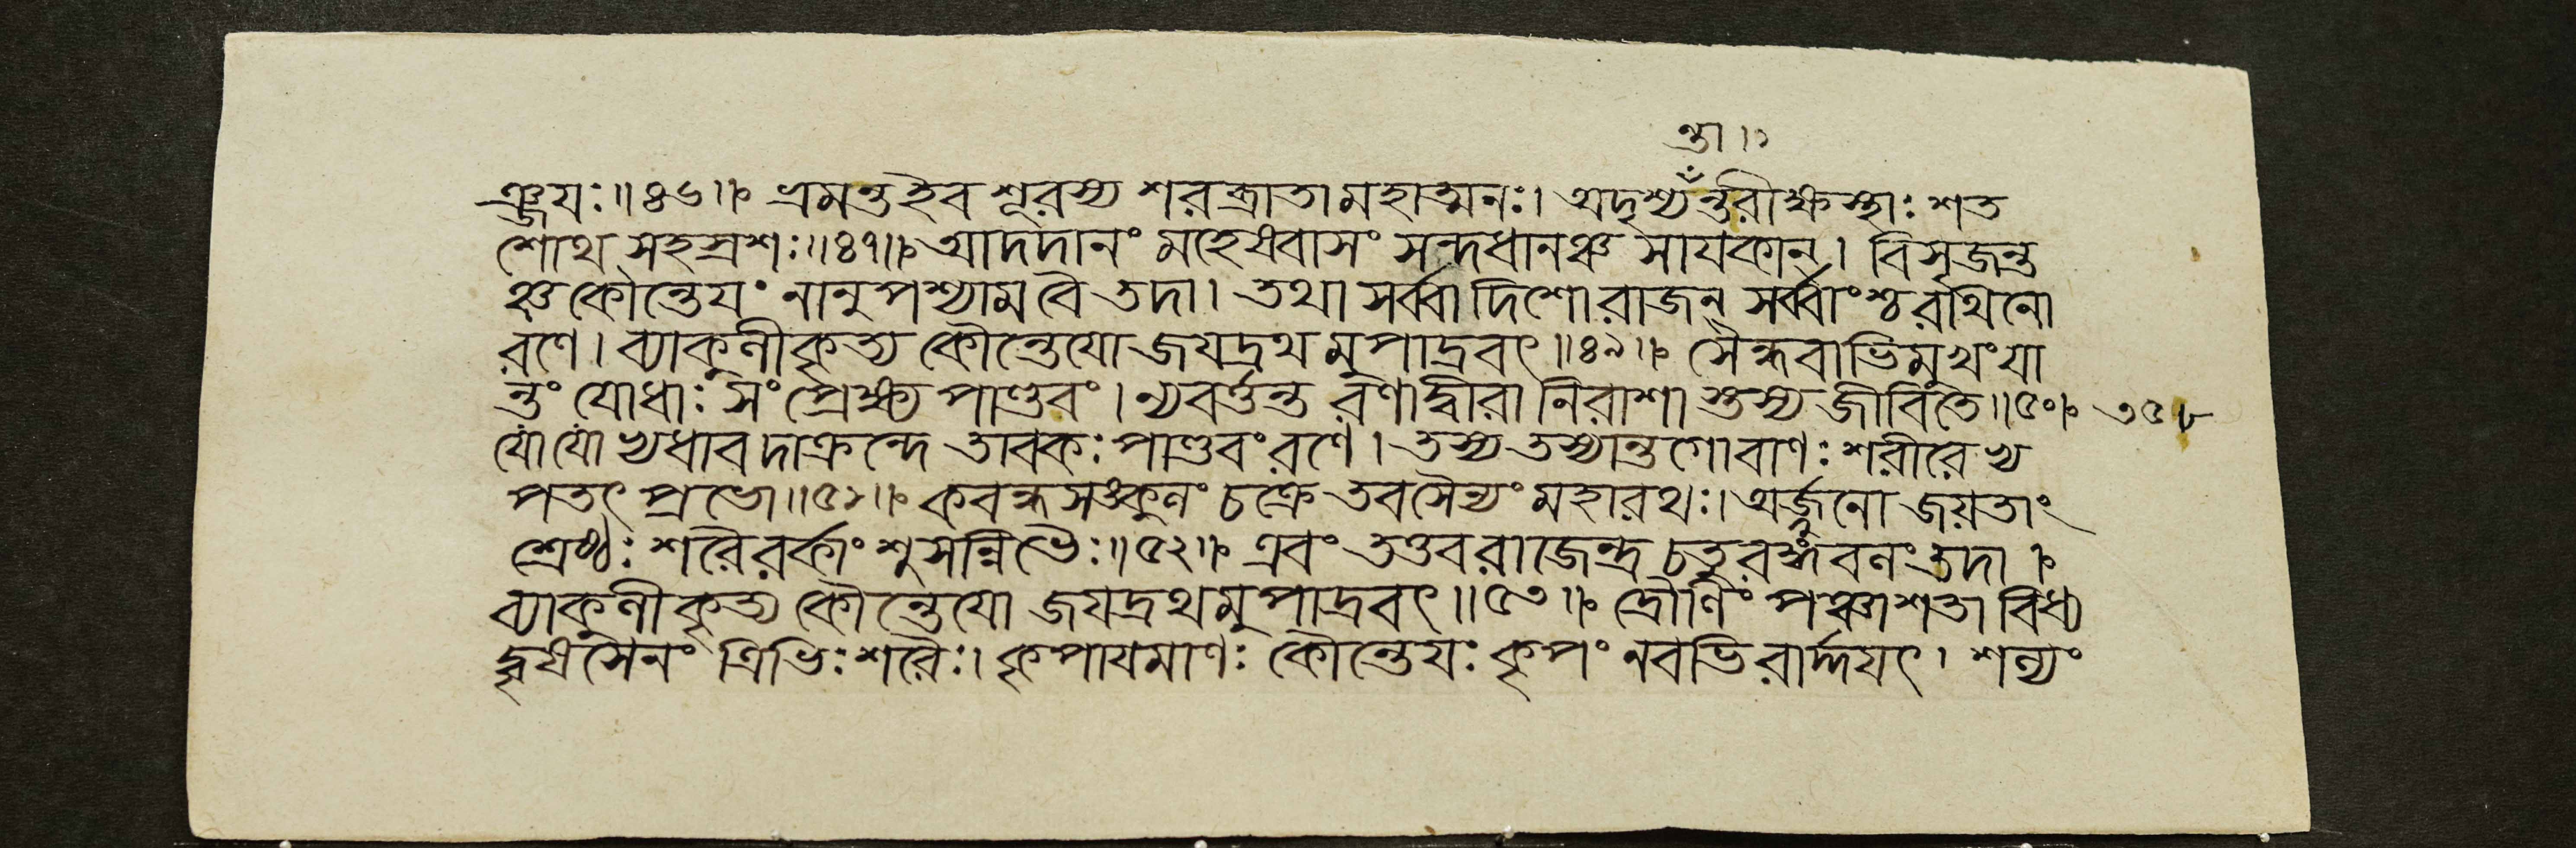 ন্তা।১
ঞ্জয়ঃ॥৪৬॥ প্রমন্তইব শূরস্য শরব্রাতা মহাত্মনঃ। অদৃশ্যঁন্তরীক্ষস্থাঃ শত
শোথ সহস্রশঃ॥৪৭॥ আদদানং মহেষ্বাসং সন্দধানঞ্চ সাযকান্। বিসৃজন্ত
ঞ্চ কৌন্তেযং নানুপশ্যাম বৈ তদা। তথা সর্ব্বা দিশো রাজন্ সর্ব্বাংশ্চ রথিনো
রণে। ব্যাকুলীকৃত্য কৌন্তেযো জযদ্রথমুপাদ্রবৎ॥৪৯॥ সৈন্ধবাভিমুখং যা
ন্তং যোধাঃ সংপ্রেক্ষ্য পাণ্ডবং। ন্যবর্ত্তন্ত রণাদ্বীরা নিরাশা স্তস্য জীবিতে॥৫০॥ ৩৫৮
যো যো ভ্যধাবদাক্রন্দে তাবকঃ পাণ্ডবং রণে। তস্য তস্যান্তগো বাণঃ শরীরে ভ্য
পতৎ প্রভো॥৫১॥ কবন্ধসঙ্কুলং চক্রে তব সৈন্যং মহারথঃ। অর্জ্জুনো জয়তাং
শ্রেষ্ঠঃ শরৈরর্কাংশুসন্নিভৈঃ॥৫২॥ এবং তত্তব রাজেন্দ্র চতুরঙ্গং বলং তদা।
ব্যাকুলীকৃত্য কৌন্তেযো জযদ্রথমুপাদ্রবৎ॥৫৩॥ দ্রৌণিং পঞ্চাশতা বিধ্য
দ্বৃষসেনং ত্রিভিঃ শরৈঃ। কৃপাযমাণঃ কৌন্তেযঃ কৃপং নবভিরার্দ্দযৎ। শল্যং